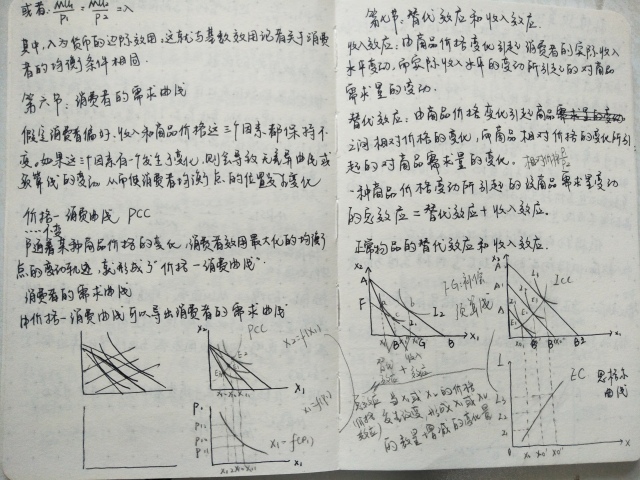 或者: MU₁/P₁ = MU₂/P₂ = λ
其中,入为货币的边际效用,这就与基数效用论者关于消费
者的均衡条件相同.
第六节: 消费者的需求曲线
假定消费者偏好、收入和商品价格这三个因素都保持不
变。如果这三个因素有一个发生了变化,则会导致无差异曲线或
预算线的变动从而使消费者均衡点的位置发生变化
价格—消费曲线 PCC
随着某种商品价格的变化,消费者效用最大化的均衡
点的变动轨迹,就形成了"价格—消费曲线"
消费者的需求曲线
由价格—消费曲线可以导出消费者的需求曲线
X₂
PCC
X₁
P₁
X₁=f(P₁)
X₁
第七节: 替代效应和收入效应.
收入效应: 由商品价格变化引起消费者的实际收入
水平变动,而实际收入水平的变动所引起的对商品
需求量的变动.
替代效应: 由商品价格变化引起商品
之间相对价格的变化,而商品相对价格的变化所引
起的对商品需求量的变化.
一种商品价格变动所引起的该商品需求量变动
的总效应=替代效应+收入效应.
正常物品的替代效应和收入效应.
X₂
A
F
I₂
B
G
B
X₁
FG: 补偿
预算线
替代效应 + 收入效应
X₂
ICC
X₁
EC
恩格尔
曲线
的数量增减的变化量